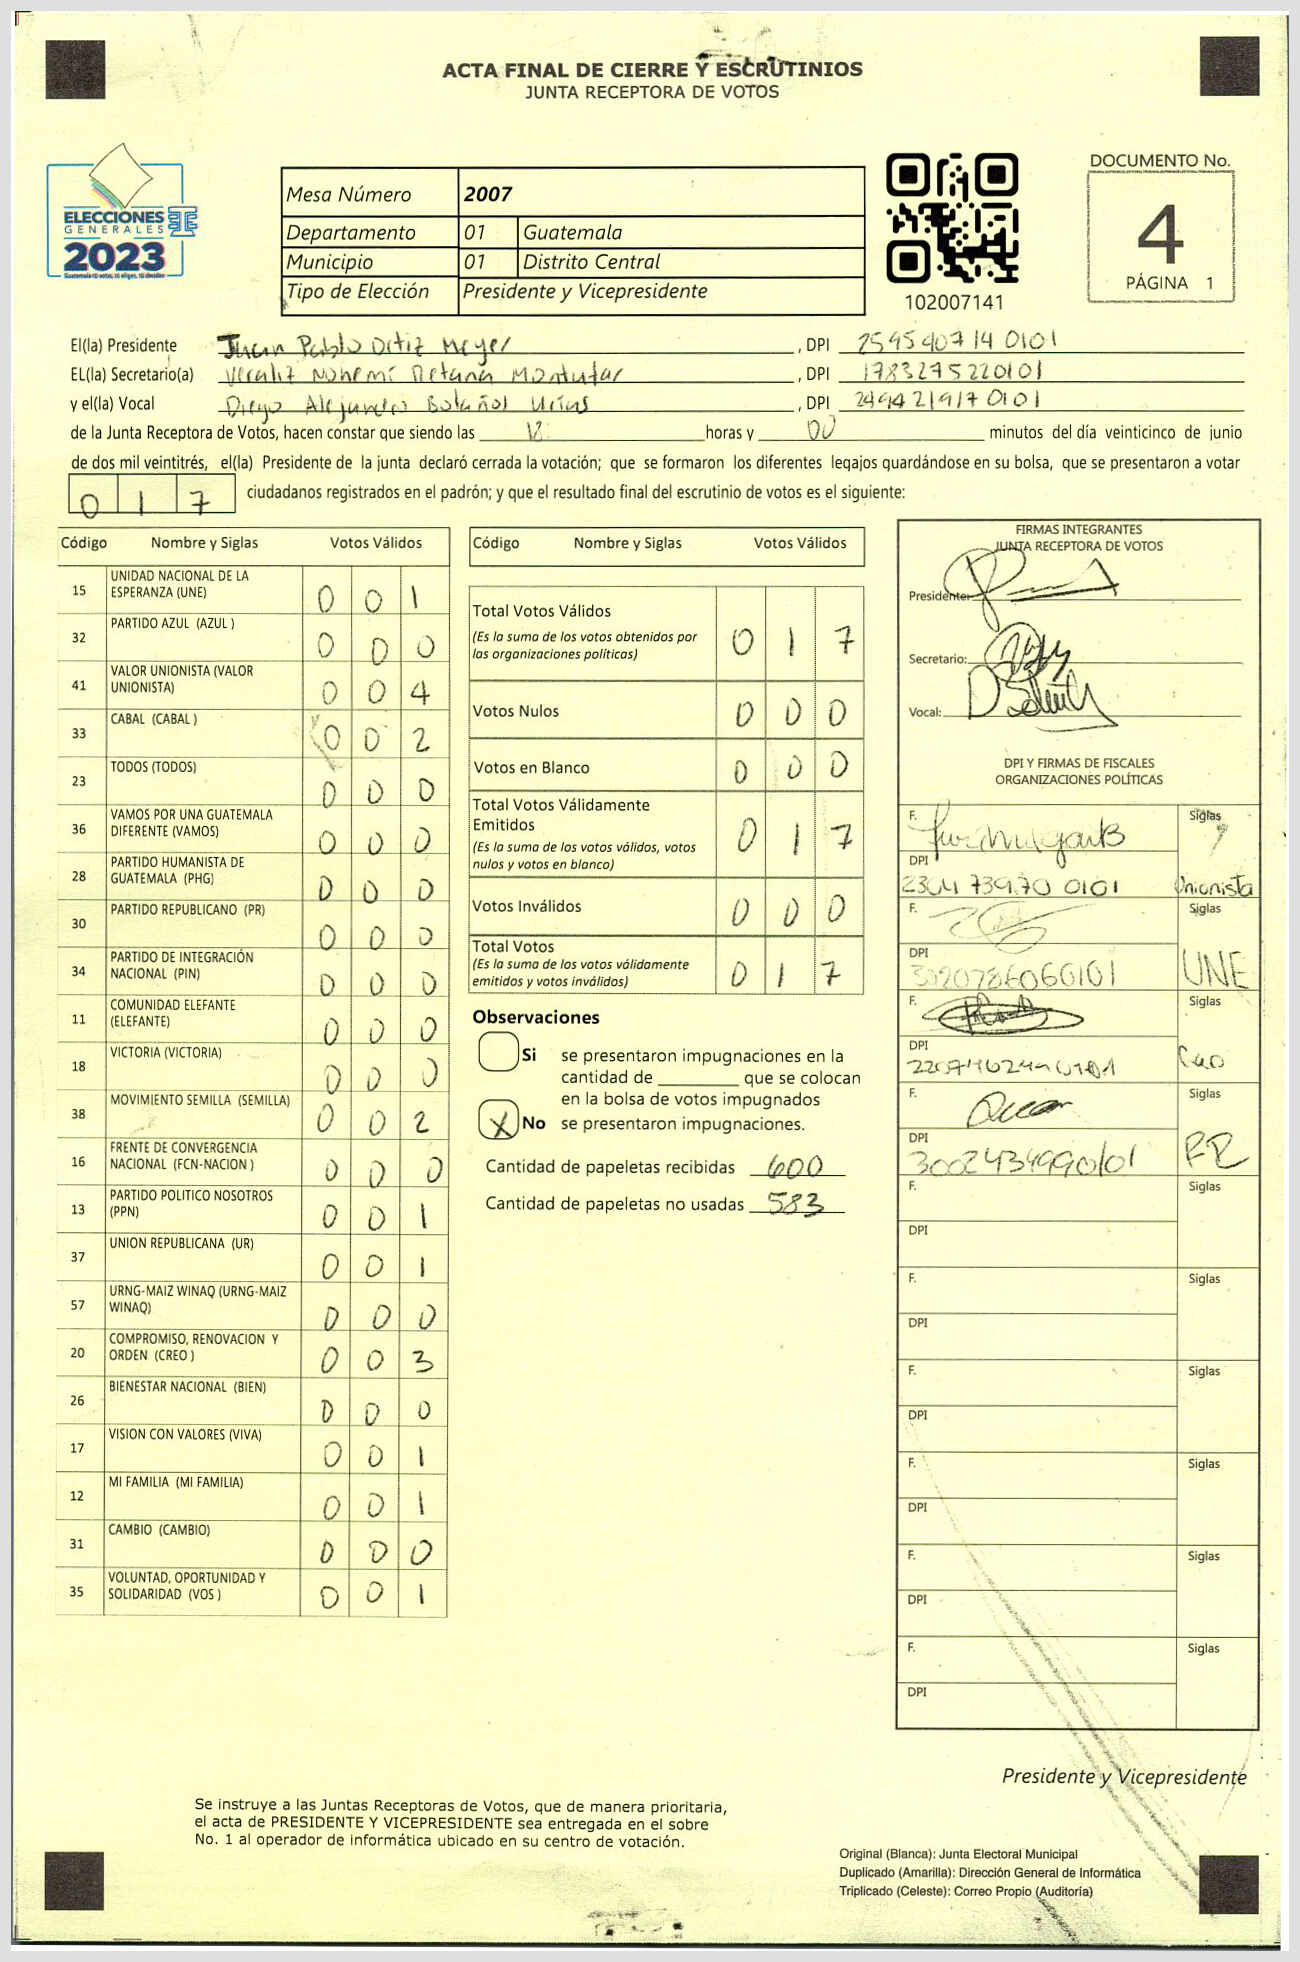 ACTA FINAL DE CIERRE Y ESCRUTINIOS
JUNTA RECEPTORA DE VOTOS
ELECCIONES
GENERALES
2023
Mesa Número 2007
Departamento 01 Guatemala
Municipio 01 Distrito Central
Tipo de Elección Presidente y Vicepresidente
102007141
DOCUMENTO No.
4
PÁGINA 1
El(la) Presidente Juan Pablo Ortiz Meyer , DPI 2595407140101
EL(la) Secretario(a) Nohemí Retana Montufar , DPI 1783275220101
y el(la) Vocal Diego Alejandro Bolaños , DPI 2494219170101
de la Junta Receptora de Votos, hacen constar que siendo las 18 horas y 00 minutos del día veinticinco de junio
de dos mil veintitrés, el(la) Presidente de la junta declaró cerrada la votación; que se formaron los diferentes legajos guardándose en su bolsa, que se presentaron a votar
0 1 7 ciudadanos registrados en el padrón; y que el resultado final del escrutinio de votos es el siguiente:
Código Nombre y Siglas Votos Válidos
15 UNIDAD NACIONAL DE LA ESPERANZA (UNE) 0 0 1
32 PARTIDO AZUL (AZUL ) 0 0 0
41 VALOR UNIONISTA (VALOR UNIONISTA) 0 0 4
33 CABAL (CABAL ) 0 0 2
23 TODOS (TODOS) 0 0 0
36 VAMOS POR UNA GUATEMALA DIFERENTE (VAMOS) 0 0 0
28 PARTIDO HUMANISTA DE GUATEMALA (PHG) 0 0 0
30 PARTIDO REPUBLICANO (PR) 0 0 0
34 PARTIDO DE INTEGRACIÓN NACIONAL (PIN) 0 0 0
11 COMUNIDAD ELEFANTE (ELEFANTE) 0 0 0
18 VICTORIA (VICTORIA) 0 0 0
38 MOVIMIENTO SEMILLA (SEMILLA) 0 0 2
16 FRENTE DE CONVERGENCIA NACIONAL (FCN-NACION ) 0 0 0
13 PARTIDO POLITICO NOSOTROS (PPN) 0 0 1
37 UNION REPUBLICANA (UR) 0 0 1
57 URNG-MAIZ WINAQ (URNG-MAIZ WINAQ) 0 0 0
20 COMPROMISO, RENOVACION Y ORDEN (CREO ) 0 0 3
26 BIENESTAR NACIONAL (BIEN) 0 0 0
17 VISION CON VALORES (VIVA) 0 0 1
12 MI FAMILIA (MI FAMILIA) 0 0 1
31 CAMBIO (CAMBIO) 0 0 0
35 VOLUNTAD, OPORTUNIDAD Y SOLIDARIDAD (VOS ) 0 0 1
Código Nombre y Siglas Votos Válidos
Total Votos Válidos 0 1 7
(Es la suma de los votos obtenidos por
las organizaciones políticas)
Votos Nulos 0 0 0
Votos en Blanco 0 0 0
Total Votos Válidamente
Emitidos 0 1 7
(Es la suma de los votos válidos, votos
nulos y votos en blanco)
Votos Inválidos 0 0 0
Total Votos
(Es la suma de los votos válidamente
emitidos y votos inválidos) 0 1 7
Observaciones
Si se presentaron impugnaciones en la
cantidad de ________ que se colocan
en la bolsa de votos impugnados
X No se presentaron impugnaciones.
Cantidad de papeletas recibidas 600
Cantidad de papeletas no usadas 583
FIRMAS INTEGRANTES
JUNTA RECEPTORA DE VOTOS
Presidente:
Secretario:
Vocal:
DPI Y FIRMAS DE FISCALES
ORGANIZACIONES POLÍTICAS
F. Siglas
DPI
Unionista
F. Siglas
DPI UNE
3020786060101
F. Siglas
DPI
F. Siglas
DPI
3002434990101
F. Siglas
DPI
F. Siglas
DPI
F. Siglas
DPI
F. Siglas
DPI
F. Siglas
DPI
F. Siglas
DPI
Presidente y Vicepresidente
Se instruye a las Juntas Receptoras de Votos, que de manera prioritaria,
el acta de PRESIDENTE Y VICEPRESIDENTE sea entregada en el sobre
No. 1 al operador de informática ubicado en su centro de votación.
Original (Blanca): Junta Electoral Municipal
Duplicado (Amarilla): Dirección General de Informática
Triplicado (Celeste): Correo Propio (Auditoría)